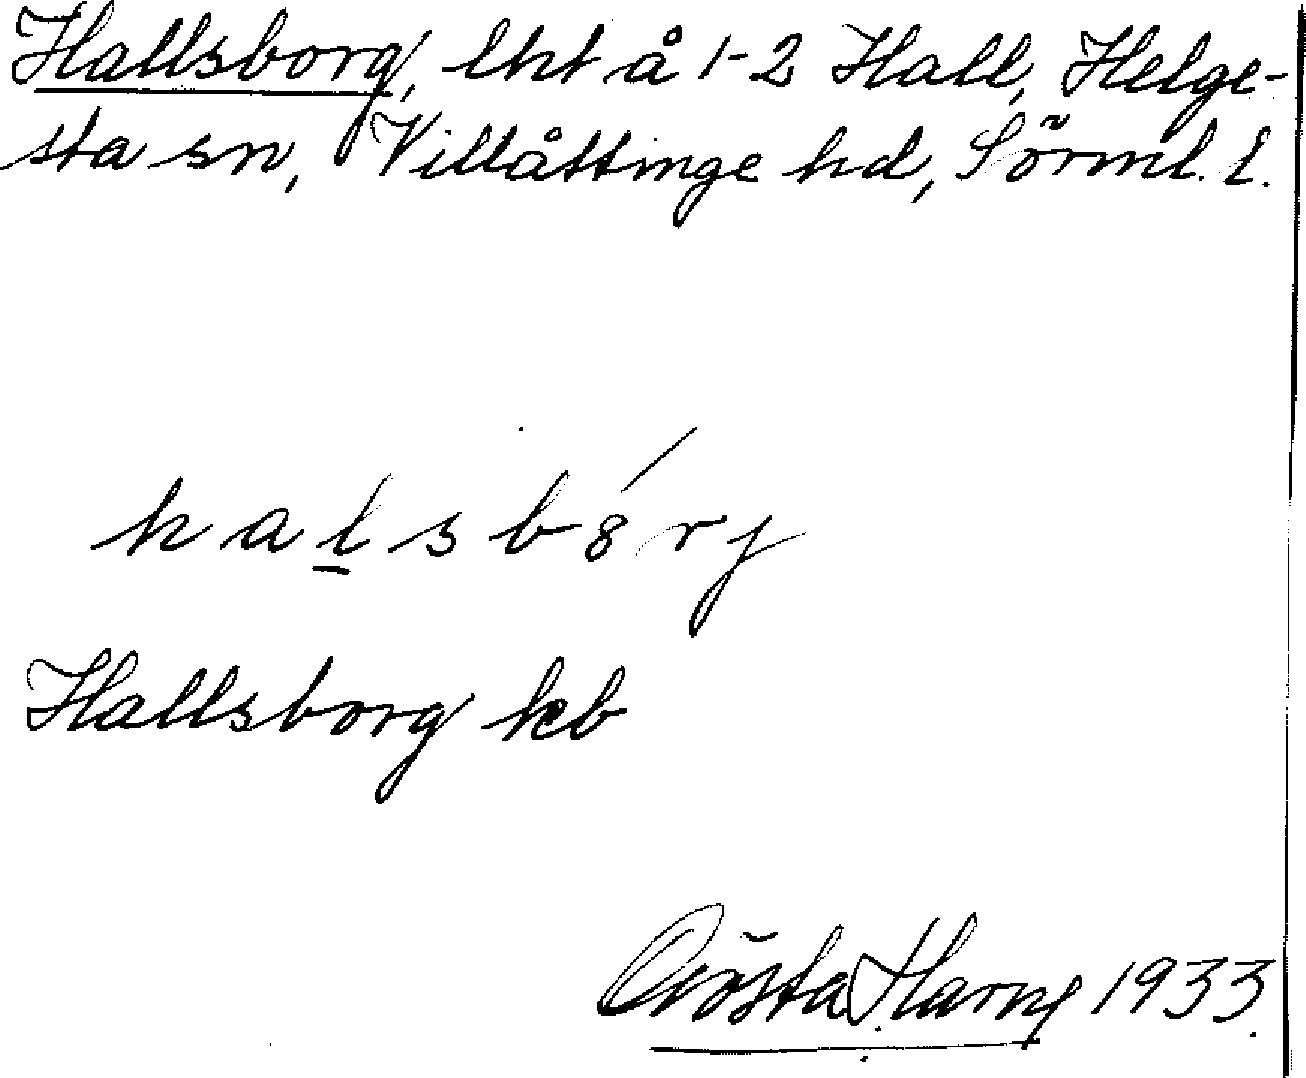 Hallsborg, lht å 1-2 Hall, Helge-
sta sn, Villåttinge hd, Sörml. l.
halsbórj
Hallsborg kb
Gösta Harng 1933.